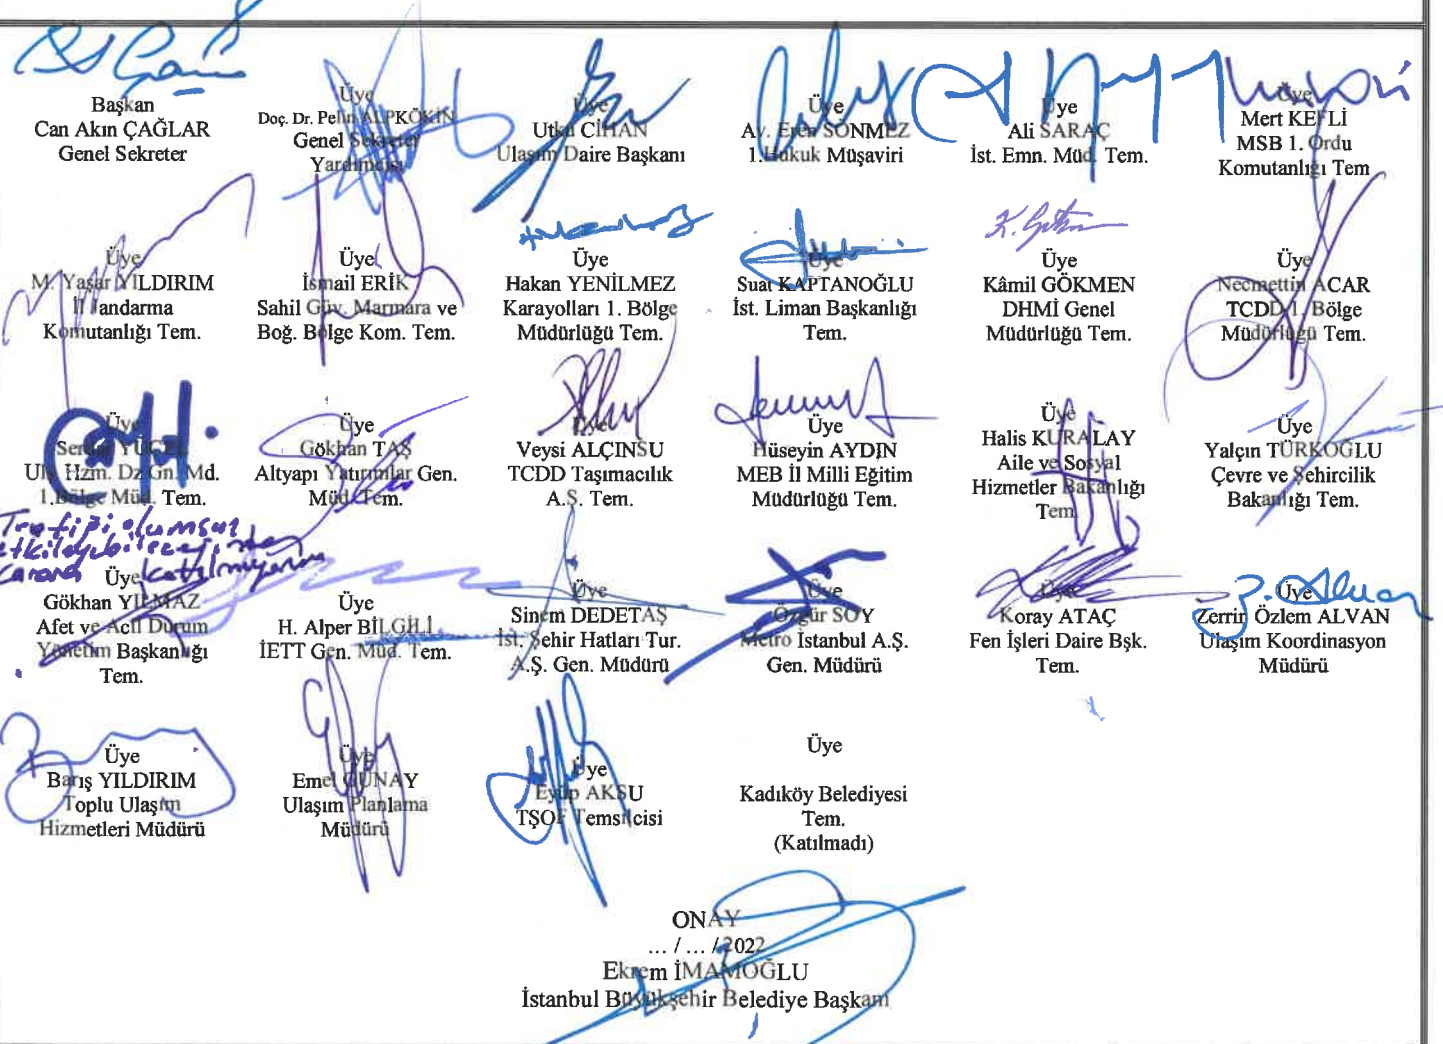 Başkan
Can Akın ÇAĞLAR
Genel Sekreter
Üye
Doç. Dr. Pelin ALPKÖKİN
Genel Sekreter
Yardımcısı
Üye
Utku CİHAN
Ulaşım Daire Başkanı
Üye
Av. Eren SÖNMEZ
1.Hukuk Müşaviri
Üye
Ali SARAÇ
İst. Emn. Müd. Tem.
Üye
Mert KEFLİ
MSB 1. Ordu
Komutanlığı Tem
Üye
M. Yaşar YILDIRIM
İl Jandarma
Komutanlığı Tem.
Üye
İsmail ERİK
Sahil Güv. Marmara ve
Boğ. Bölge Kom. Tem.
Üye
Hakan YENİLMEZ
Karayolları 1. Bölge
Müdürlüğü Tem.
Üye
Suat KAPTANOĞLU
İst. Liman Başkanlığı
Tem.
K. Gökmen
Üye
Kâmil GÖKMEN
DHMİ Genel
Müdürlüğü Tem.
Üye
Necmettin ACAR
TCDD 1. Bölge
Müdürlüğü Tem.
Üye
Serdar YÜCEL
Ulş. Hzm. Dz Gn. Md.
1.Bölge Müd. Tem.
Üye
Gökhan TAŞ
Altyapı Yatırımlar Gen.
Müd. Tem.
Üye
Veysi ALÇINSU
TCDD Taşımacılık
A.Ş. Tem.
Üye
Hüseyin AYDIN
MEB İl Milli Eğitim
Müdürlüğü Tem.
Üye
Halis KURALAY
Aile ve Sosyal
Hizmetler Bakanlığı
Tem
Üye
Yalçın TÜRKOĞLU
Çevre ve Şehircilik
Bakanlığı Tem.
Trafiği olumsuz
etkileyebileceğinden
karara katılmıyorum
Üye
Gökhan YILMAZ
Afet ve Acil Durum
Yönetim Başkanlığı
Tem.
Üye
H. Alper BİLGİLİ
İETT Gen. Müd. Tem.
Üye
Sinem DEDETAŞ
İst. Şehir Hatları Tur.
A.Ş. Gen. Müdürü
Üye
Özgür SOY
Metro İstanbul A.Ş.
Gen. Müdürü
Üye
Koray ATAÇ
Fen İşleri Daire Bşk.
Tem.
Z. Alvan
Üye
Zerrin Özlem ALVAN
Ulaşım Koordinasyon
Müdürü
Üye
Barış YILDIRIM
Toplu Ulaşım
Hizmetleri Müdürü
Üye
Emel GÜNAY
Ulaşım Planlama
Müdürü
Üye
Eyüp AKSU
TŞOF Temsilcisi
Üye
Kadıköy Belediyesi
Tem.
(Katılmadı)
ONAY
... / ... / 2022
Ekrem İMAMOĞLU
İstanbul Büyükşehir Belediye Başkanı